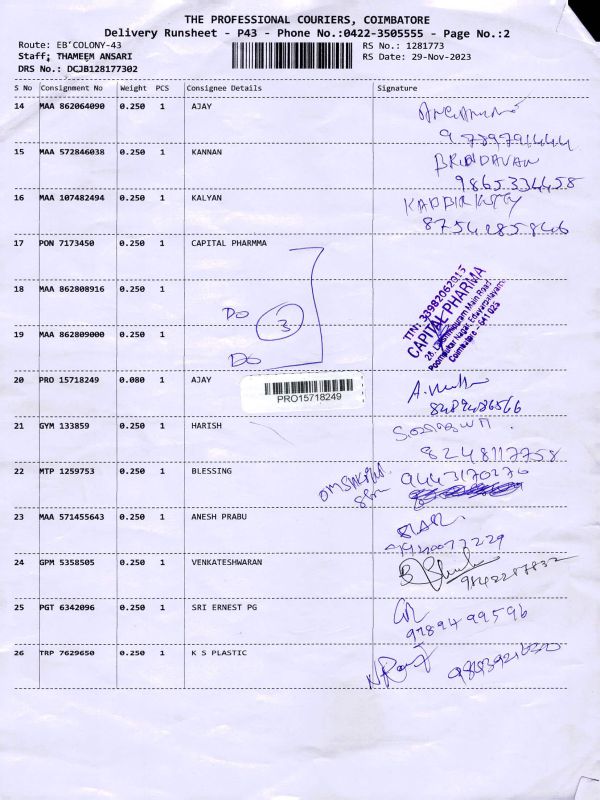 THE PROFESSIONAL COURIERS, COIMBATORE
Delivery Runsheet - P43 - Phone No.:0422-3505555 - Page No.:2
Route: EB'COLONY-43
RS No.: 1281773
Staff: THAMEEM ANSARI
RS Date: 29-Nov-2023
DRS No.: DCJB128177302
S No Consignment No Weight PCS Consignee Details Signature
14 MAA 862064090 0.250 1 AJAY
15 MAA 572846038 0.250 1 KANNAN BRINDAVAN
9865334458
16 MAA 107482494 0.250 1 KALYAN
8754285846
17 PON 7173450 0.250 1 CAPITAL PHARMMA
18 MAA 862808916 0.250 1
DO 3
19 MAA 862809000 0.250 1
DO
TIN: 33982062915
CAPITAL PHARMA
28, Lakshmipuram Main Road
Coimbatore - 641 025
20 PRO 15718249 0.080 1 AJAY
PRO15718249
8489486566
21 GYM 133859 0.250 1 HARISH
8248117758
22 MTP 1259753 0.250 1 BLESSING 9443170276
23 MAA 571455643 0.250 1 ANESH PRABU
24 GPM 5358505 0.250 1 VENKATESHWARAN
25 PGT 6342096 0.250 1 SRI ERNEST PG
9789499596
26 TRP 7629650 0.250 1 K S PLASTIC